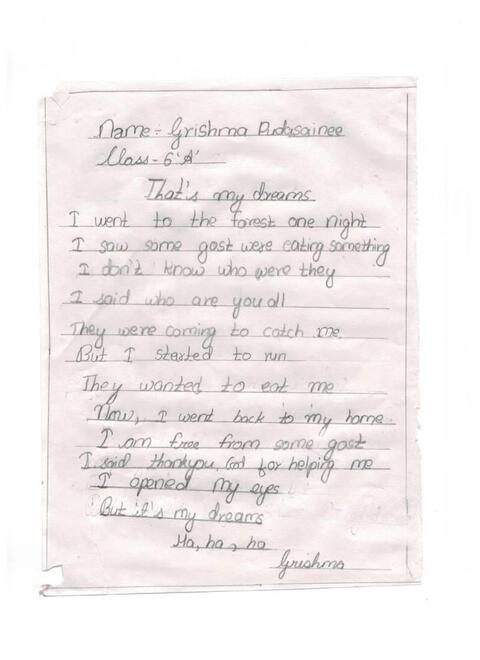 Name - Grishma Pudasainee
Class - 6 'A'
That's my dreams
I went to the forest one night
I saw some gost were eating something
I don't know who were they
I said who are you all
They were coming to catch me.
But I started to run
They wanted to eat me
Now, I went back to my home.
I am free from some gost
I said thankyou, God for helping me
I opened my eyes
But it's my dreams
Ha, ha, ha
Grishma